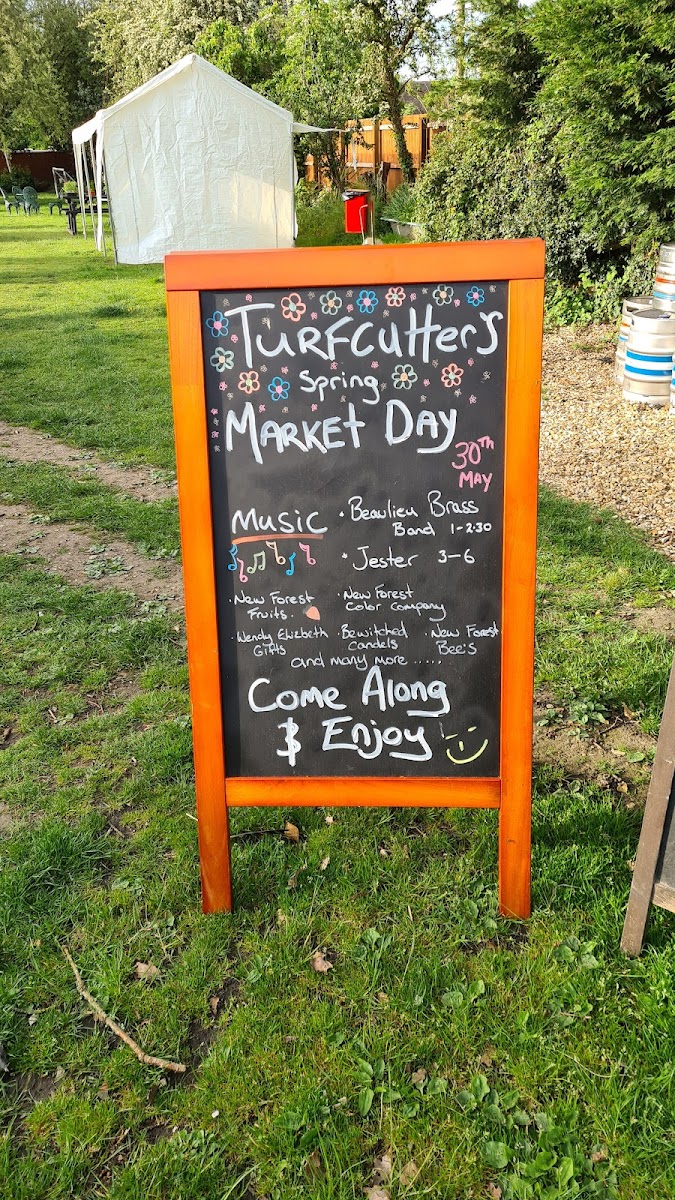 TURFCUTTER'S
Spring
MARKET DAY
30TH
MAY
MUSIC
• Beaulieu Brass
Band 1-2:30
• Jester 3-6
• New Forest
Fruits.
• New Forest
Color company
• Wendy Elizbeth
Gifts
• Bewitched
Candels
• New Forest
Bee's
and many more .....
Come Along
& Enjoy